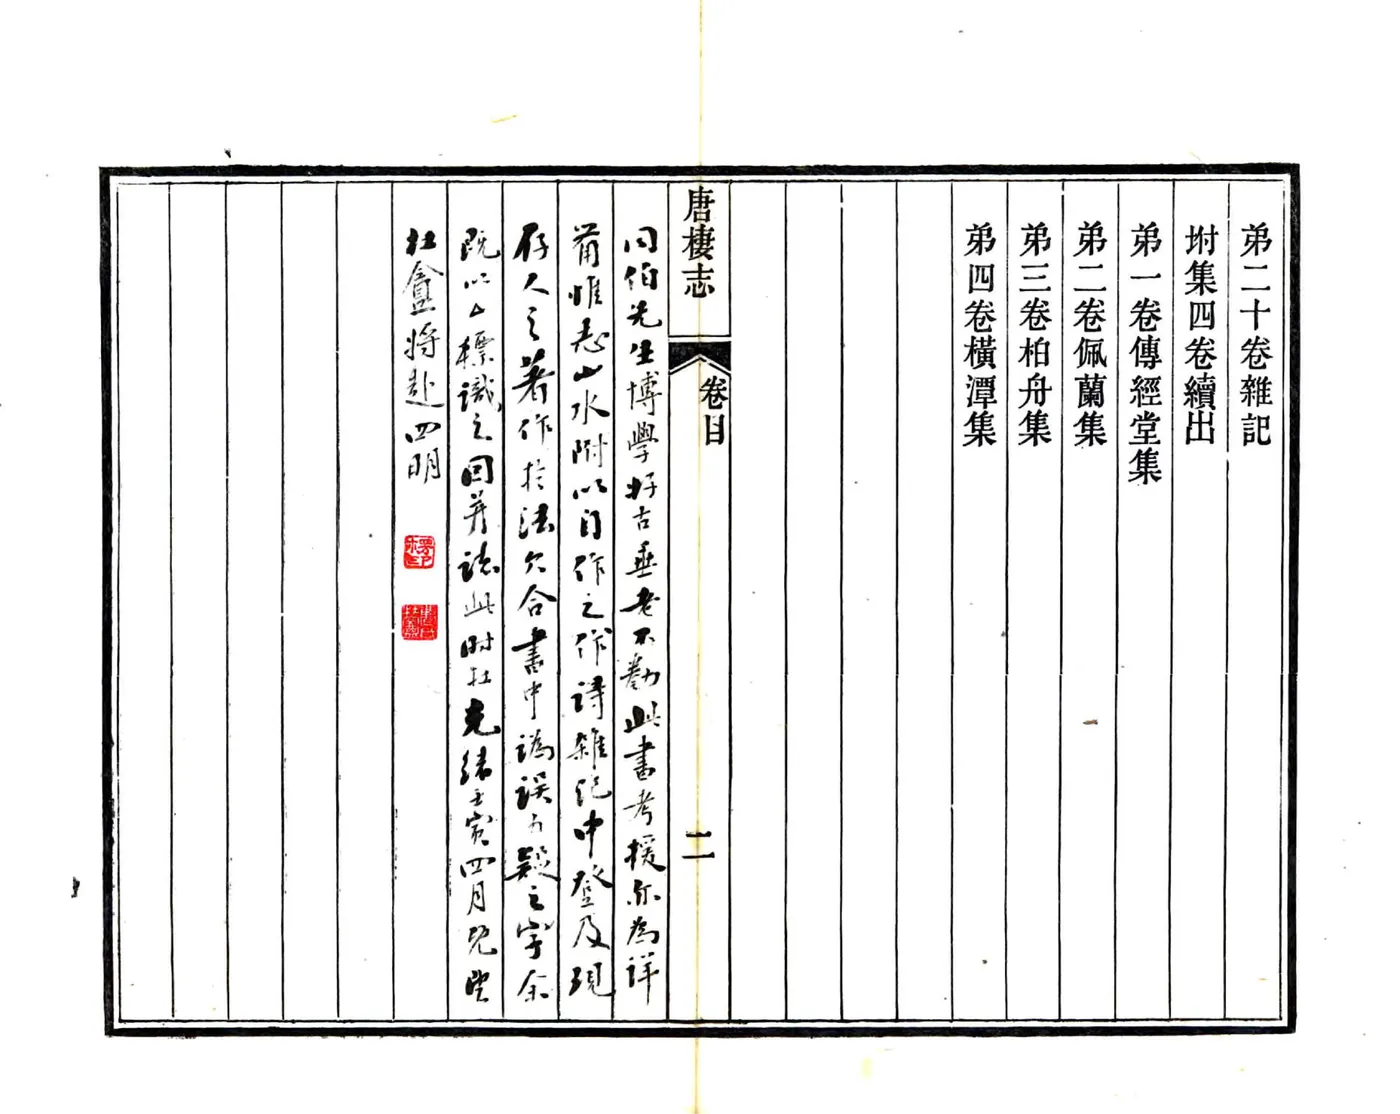 弟二十卷雜記
坿集四卷續出
弟一卷傳經堂集
弟二卷佩蘭集
弟三卷柏舟集
弟四卷橫潭集
唐棲志
卷目
二
同伯先生博學好古垂老不勌此書考援亦為詳
葡惟志山水附以自作之作詩雜記中登及現
存人之著作於法欠合書中譌誤可疑之字余
既以厶標識之回并誌此時在光緒壬寅四月既望
杜盦將赴四明